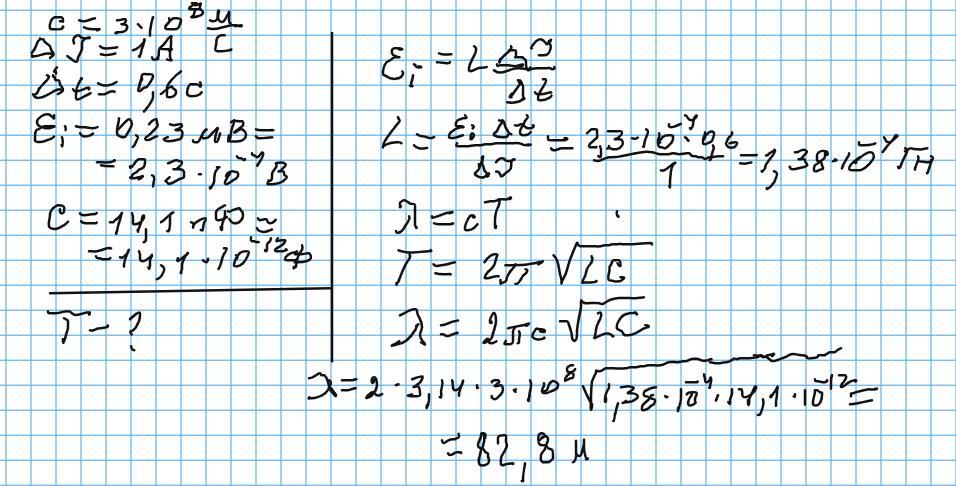 c = 3·10⁸ м/с
ΔJ = 1A
Δt = 0,6с
Ɛᵢ = 0,23 мВ =
= 2,3·10⁻⁴ В
C = 14,1 пФ =
= 14,1·10⁻¹² Ф
T - ?
Ɛᵢ = L ΔJ/Δt
L = Ɛᵢ Δt/ΔJ = 2,3·10⁻⁴·0,6/1 = 1,38·10⁻⁴ Гн
λ = cT
T = 2π √LC
λ = 2πc √LC
λ = 2·3,14·3·10⁸ √1,38·10⁻⁴·14,1·10⁻¹² =
= 82,8 м